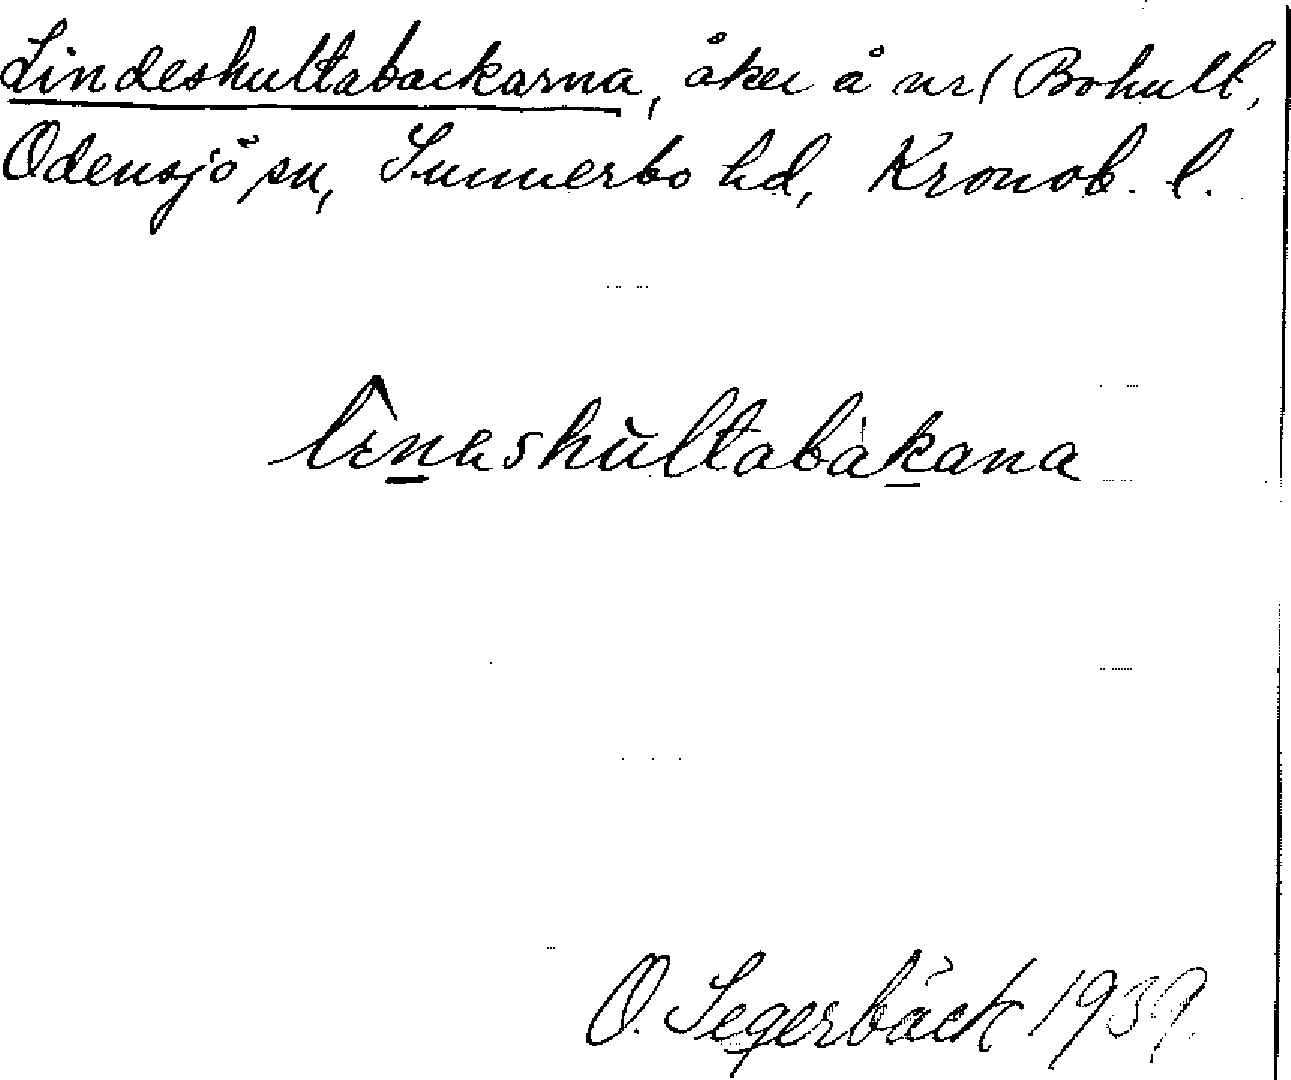 Lindeshultabackarna, åker å nr 1 Bohult,
Odensjö sn, Sunnerbo hd, Kronob. l.
lineshultabakana
O. Segerbäck 1939.